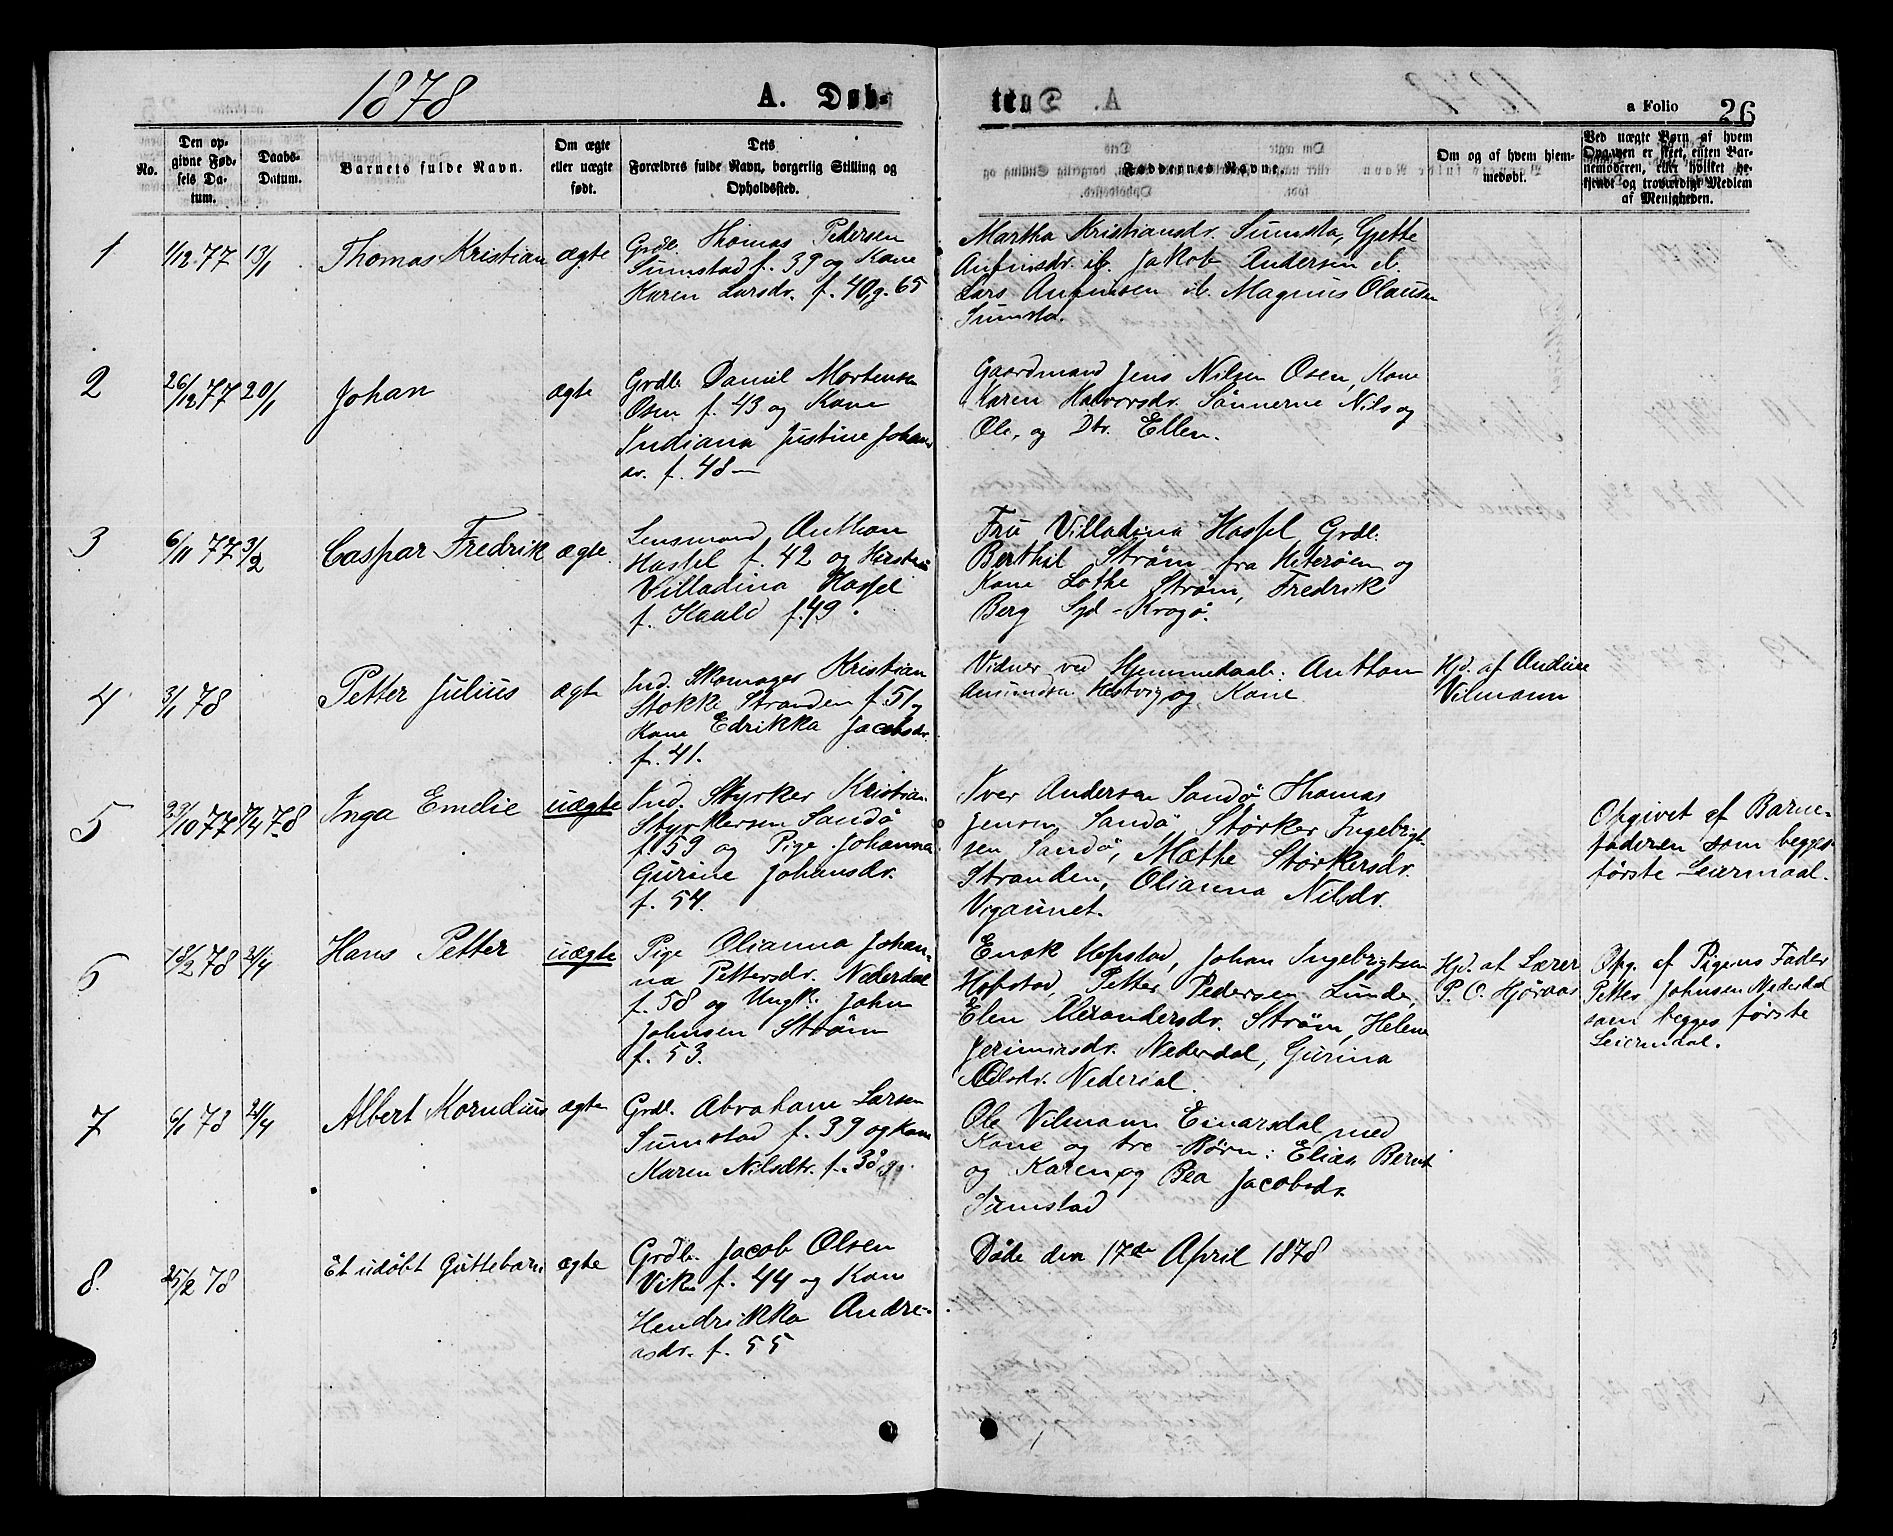 1878
A. Døb-
ten
a Folio 26
No.
Den op-
givne Fød-
sels Da-
tum.
Daabs-
Datum.
Barnets fulde Navn.
Om ægte
eller uægte
født.
Dets
Forældres fulde Navn, borgerlig Stilling og
Opholdssted.
Faddernes Navne.
Om og af hvem hjem-
medøbt.
Ved uægte Børn af hvem
Opgaven er skeet, enten Bar-
nemoderen, eller hvilket be-
kjendt og troværdigt Medlem
af Menigheden.
1
1/12 77
13/1
Thomas Kristian
ægte
Grdb. Thomas Pedersen
Sumstad f. 39 og Kone
Karen Larsdr. f. 40 g. 65
Martha Kristiansdr. Sumsta, Gjette
Anfinsdr. ib. Jakob Andersen ib.
Lars Anfinsen ib. Magnus Olausen
Sumsta.
2
26/12 77
20/1
Johan
ægte
Grdb. Daniel Mortensen
Osen f. 43 og Kone
Indiana Justine Johans
dr. f. 48
Gaardmand Jens Nilsen Osen, Kone
Karen Halvorsdr. Sønnerne Nils og
Ole, og Dtr. Ellen.
3
6/11 77
3/2
Caspar Fredrik
ægte
Lensmand Anthon
Hassel f. 42 og Hustru
Villadina Hassel
f. Haald f. 49.
Fru Villadina Hassel, Grdb.
Berthil Strøm fra Hiterøen og
Kone Lothe Strøm, Fredrik
Berg Spd -Krogø.
4
3/1 78
Petter Julius
ægte
Ind. Skomager Kristian
Stokke Stranden f. 51 og
Kone Edrikka Jacobsdr.
f. 41.
Vidner ved Hjemmedaab: Anthon
Amundsen Hestvig og Kone
Hjd. af Andreas
Vilmann
5
23/10 77
7/4 78
Inga Emelie
uægte
Ind. Styrker Kristian
Styrkersen Sandø
f. 59 og Pige Johanna
Gurine Johansdr.
f. 54.
Iver Andersen Sandø Thomas
Jensen Sandø Størker Ingebrigt-
sen Sandø, Mæthe Størkersdr.
Stranden, Olianna Nilsdr.
Vigaunet.
Opgivet af Barne-
faderen som begges
første Leiermaal.
6
18/2 78
21/4
Hans Petter
uægte
Pige Olianna Johan-
na Pettersdr. Nederdal
f. 58 og Ungk. John
Johnsen Strøm
f. 53.
Enok Hofstad, Johan Ingebrigtsen
Hofstad, Petter Pedersen Lunde,
Elen Alexandersdr. Strøm, Helene
Jerimiasdr. Nederdal, Gurina
Nederdal.
Hjd. af Lærer
P. O. Hjøraas
Opg. af Pigens Fader
Petter Johnsen Nederdal
som begges første
Leiermaal.
7
6/1 78
21/4
Albert Kornelius
ægte
Grdb. Abraham Larsen
Sumstad f. 39 og Kone
Karen Nilsdtr. f. 38
Ole Vilmann Einarsdal med
Kone og tre Børn: Elias, Bernt
og Karen, og Bea Jacobsdr.
Sumstad
8.
25/2 78
Et udøbt Guttebarn
ægte
Grdb. Jacob Olsen
Vik f. 44 og Kone
Hendrikka Andre-
asdr. f. 55
Døde den 17de April 1878